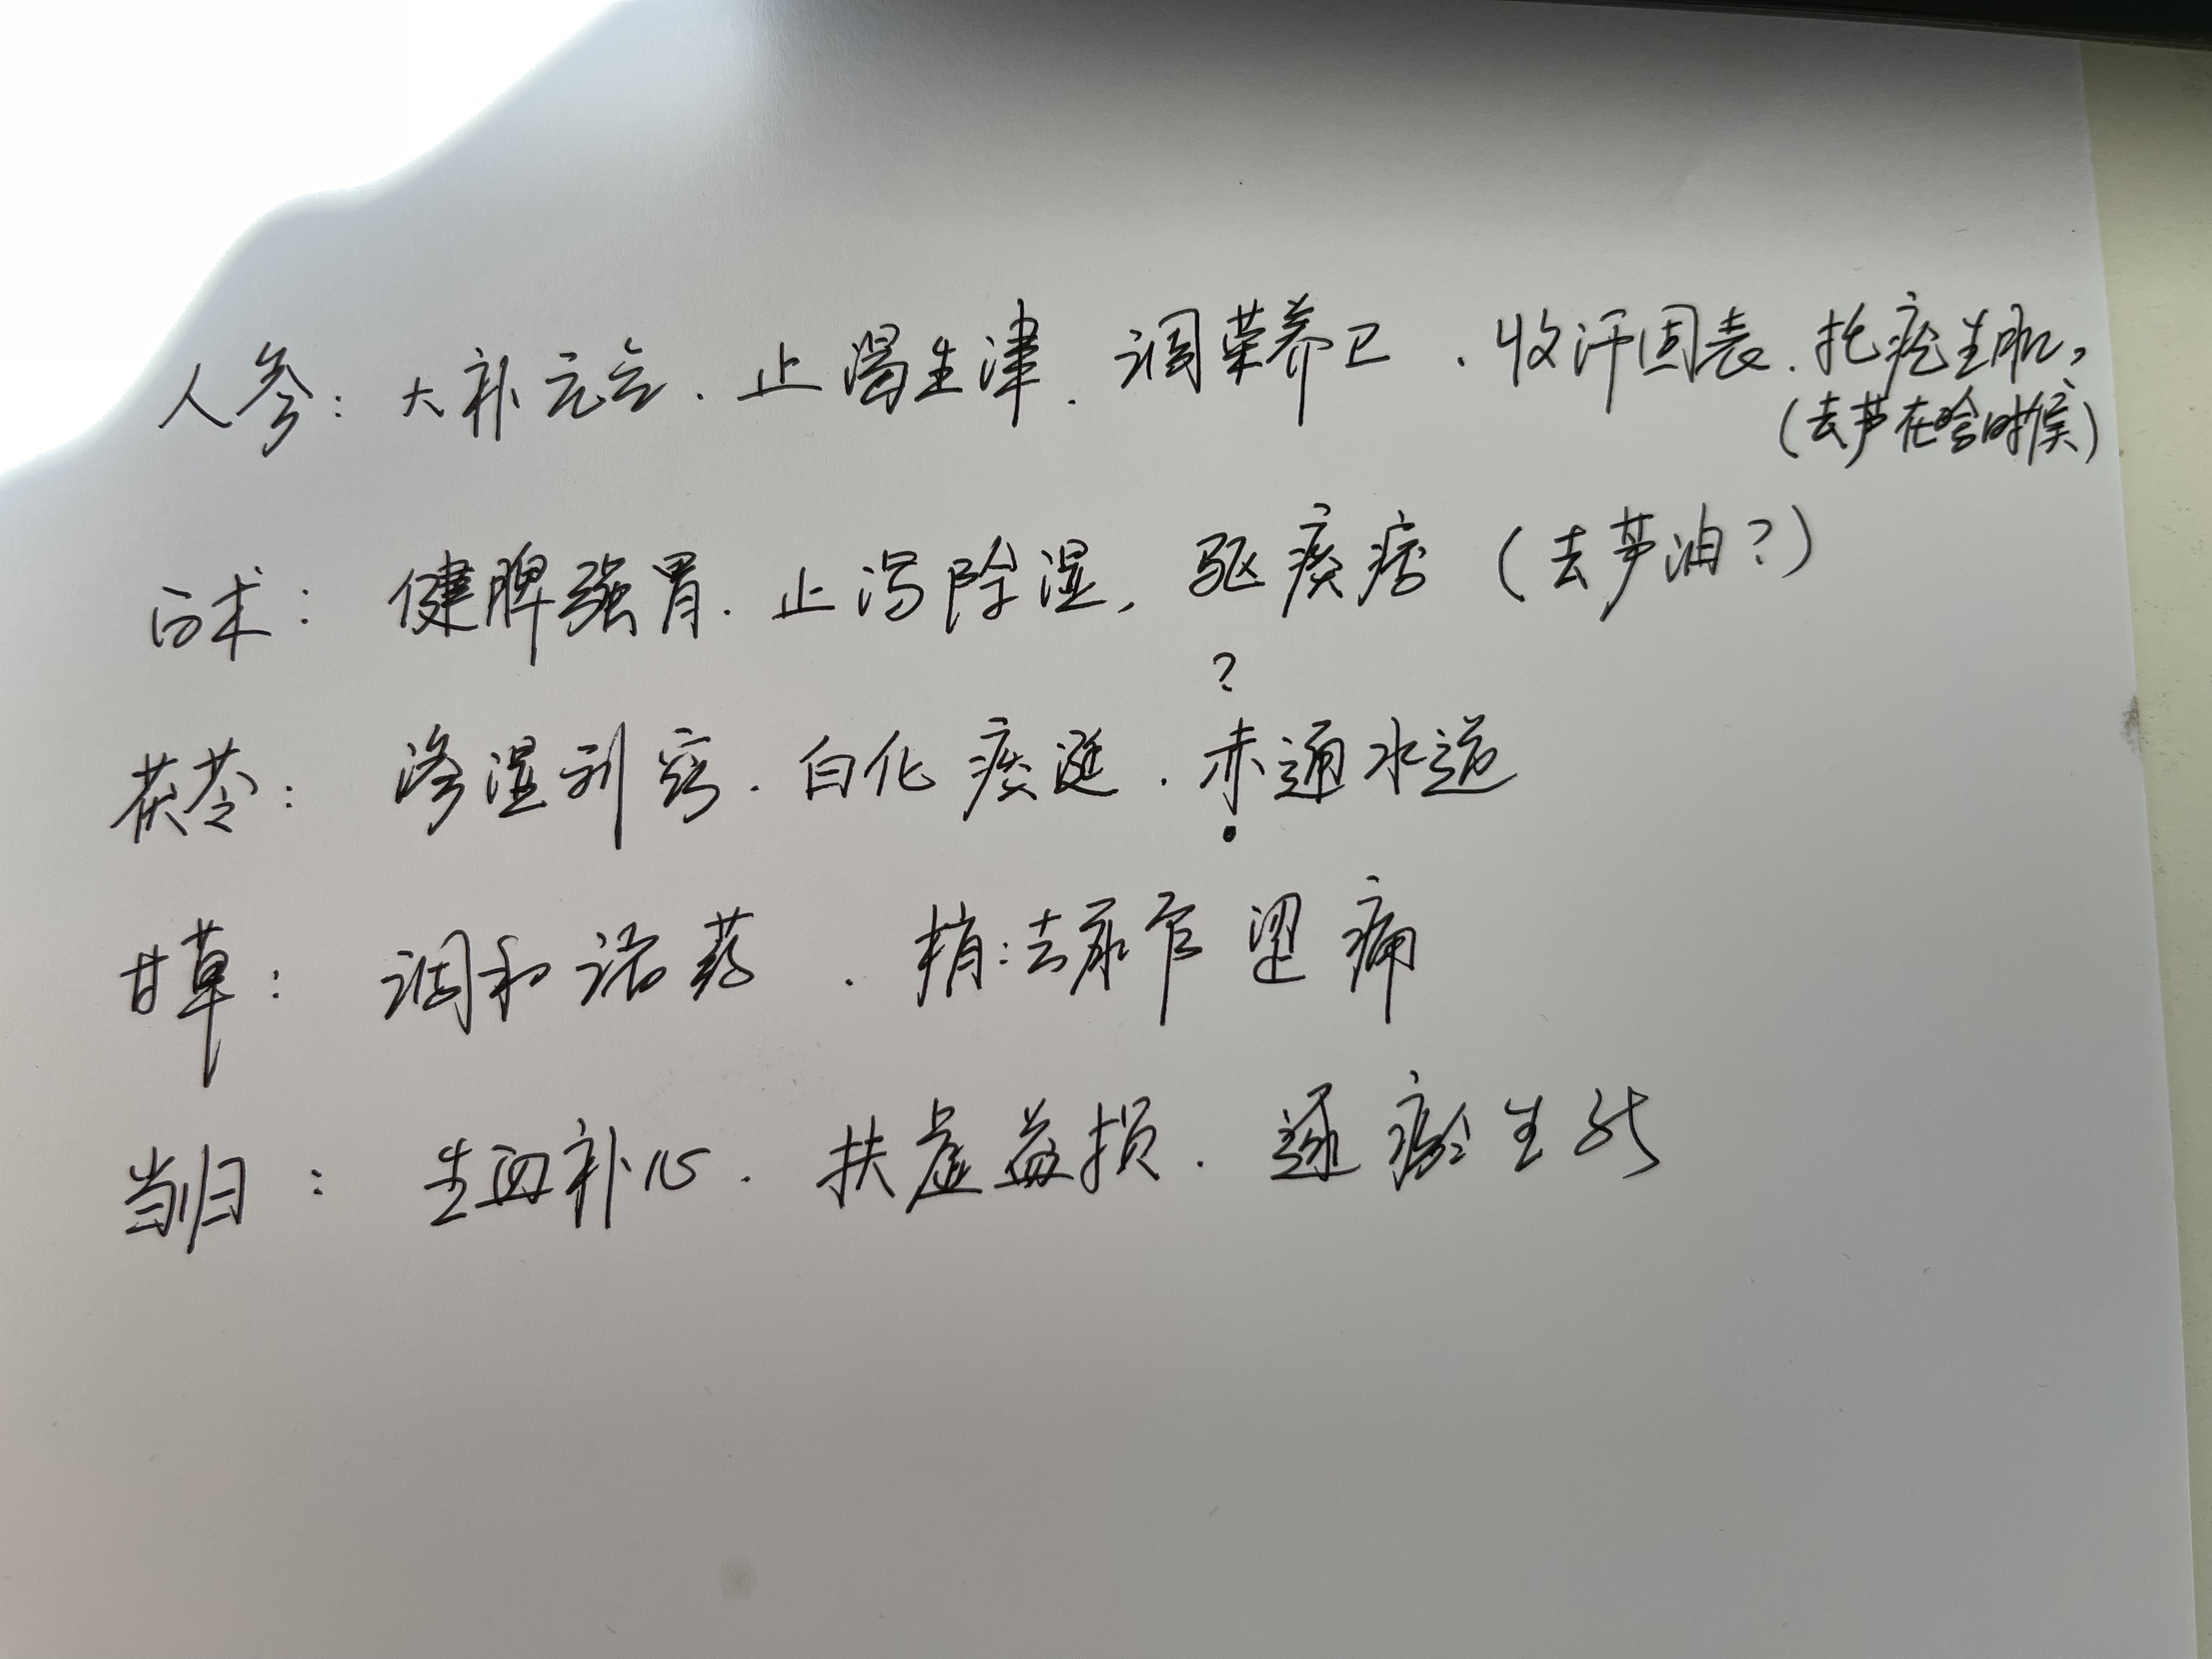 人参：大补元气．止渴生津．调荣养卫．收汗固表．托疮生肌，
（去芦在啥时候）
白术：健脾强胃．止泻除湿，驱痰痞（去芦油？）
？
茯苓：渗湿利窍．白化痰涎．赤通水道
甘草：调和诸药．梢：去尿管涩痛
当归：生血补心．扶虚益损．逐瘀生新